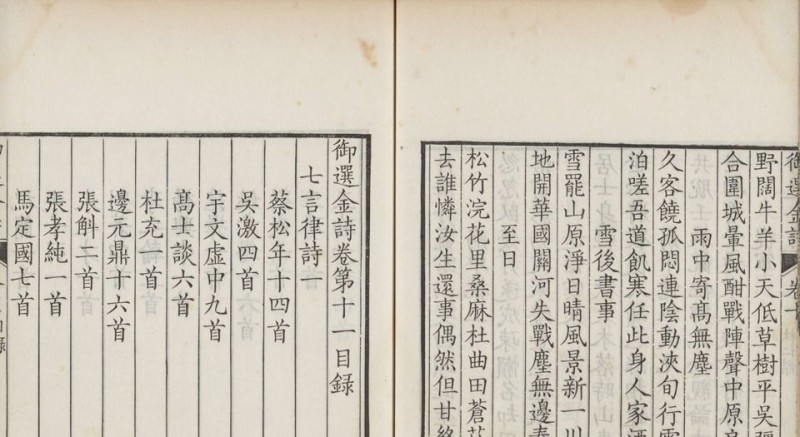 御選金詩 卷十
野闊牛羊小天低草樹平吳
合圍城暈風酣戰陣聲中原
雨中寄髙無塵
久客饒孤悶連陰動浹旬行
泊嗟吾道飢寒任此身人家酒
雪後書事
雪罷山原淨日晴風景新一川
地開華國關河失戰塵無邊春
至日
松竹浣花里桑麻杜曲田蒼
去誰憐汝生還事偶然但甘終
御選金詩卷第十一目録
七言律詩一
蔡松年十四首
吳激四首
宇文虛中九首
髙士談六首
杜充一首
邊元鼎十六首
張斛二首
張孝純一首
馬定國七首